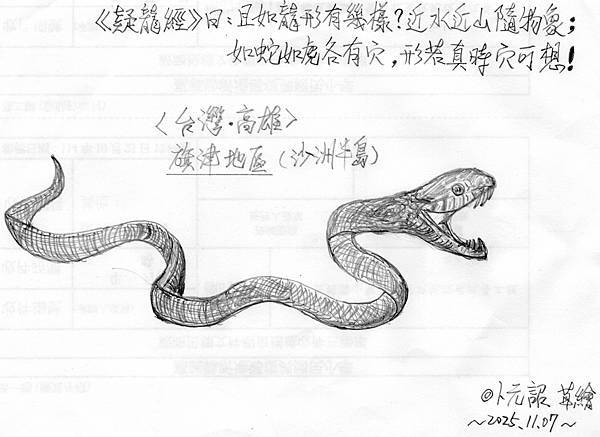 《疑龍經》曰:且如龍形有幾樣?近水近山隨物象;
如蛇如虎各有穴,形若真時穴可想!
<台灣·高雄>
旗津地區(沙洲半島)
©卜元詔 草繪
~2025.11.07~